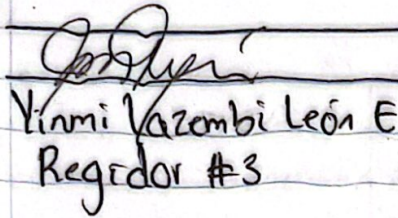 Yinmi Yazembi León E
Regidor #3